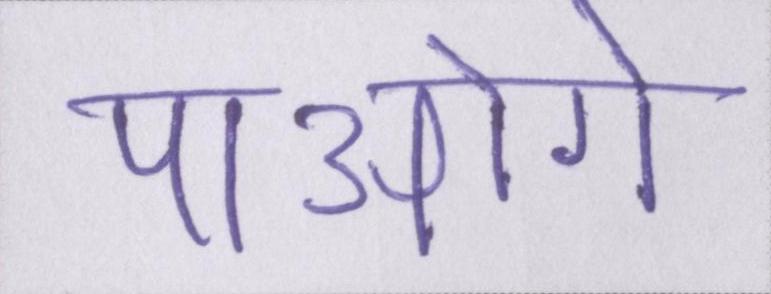 पाओगे